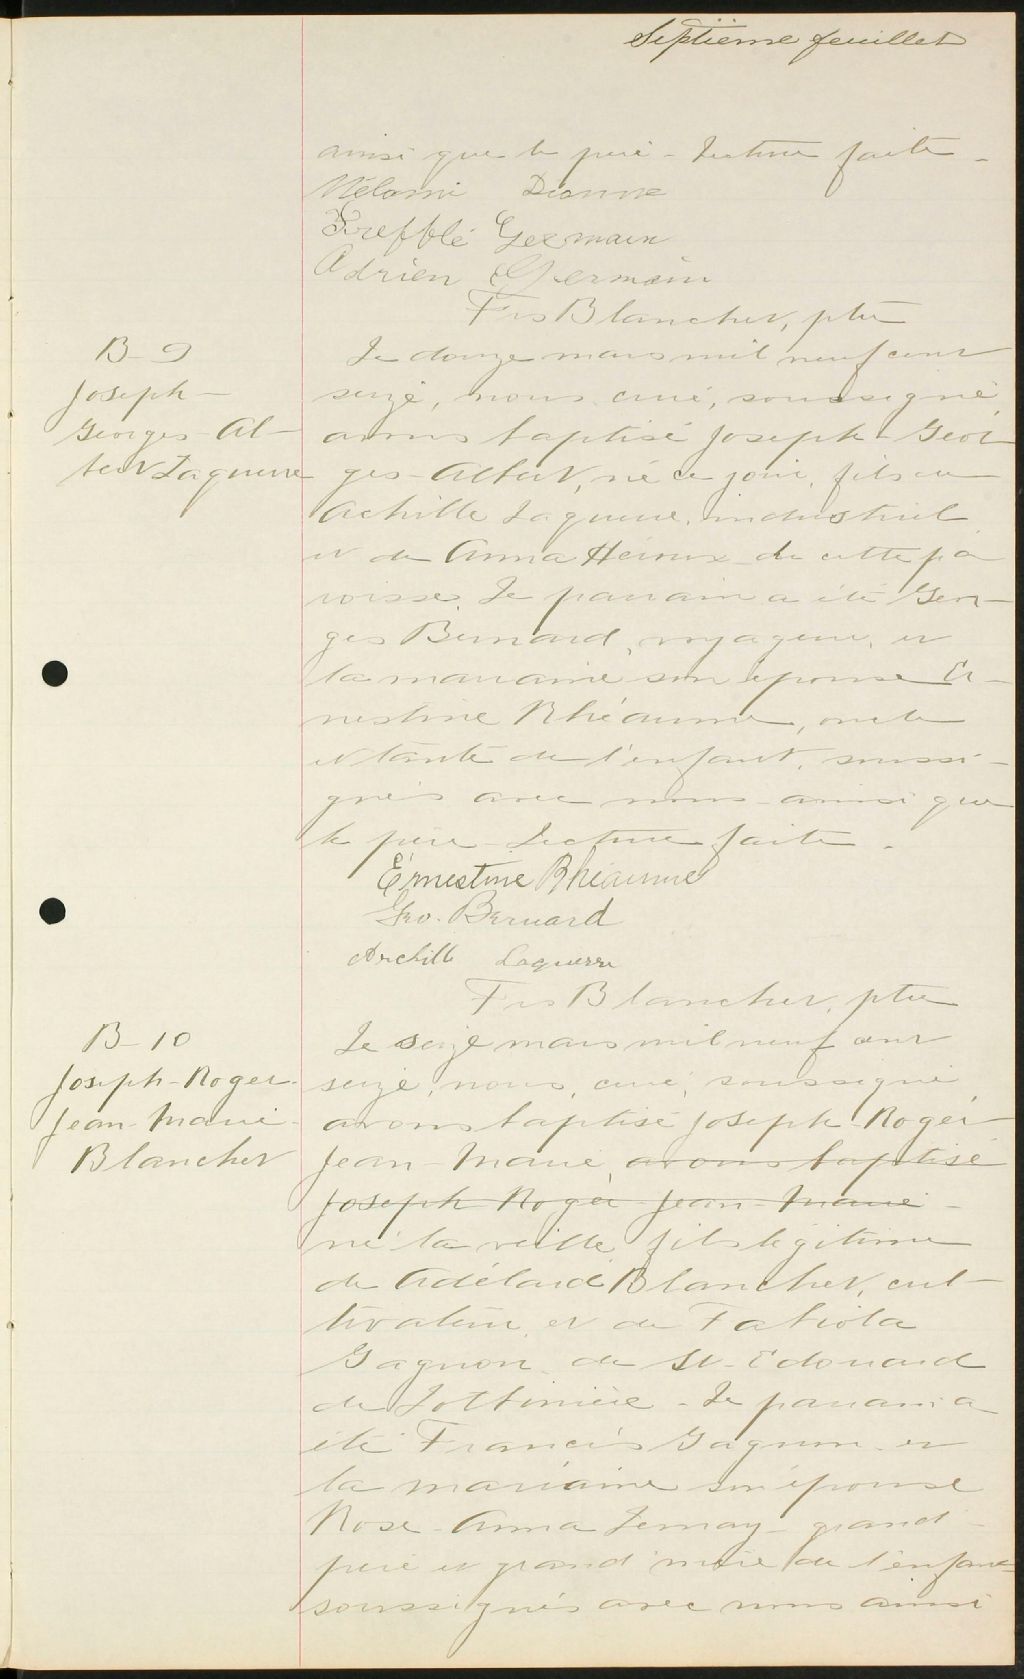 Septième feuillet
ainsi que le père - Lecture faite -
Mélani Dionne
Trefflé Germain
Adrien Germain
Frs Blanchet, ptre
B-9
Joseph-
Georges-Al-
bert Laguerre
Le douze mars mil neuf cent
seize, nous curé, soussigné,
avons baptisé Joseph-Geor-
ges-Albert, né ce jour, fils de
Achille Laguerre, industriel
et de Anna Héroux de cette pa
roisse. Le parrain a été Geor-
ges Bernard, voyageur, et
la marraine son épouse Er-
nestine Rhéaume, oncle
et tante de l'enfant, soussi-
gnés avec nous ainsi que
le père Lecture faite.
Érnestine Rhéaume
Geo. Bernard
Archille Laguerre
Frs Blanchet, ptre
B-10
Joseph-Roger-
Jean-Marie-
Blanchet
Le seize mars mil neuf cent
seize, nous, curé, soussigné
avons baptisé Joseph-Roger
Jean-Marie, avons baptisé
Joseph Roger Jean-Marie -
né la veille, fils légitime
de Adélard Blanchet, cul-
tivateur, et de Fabiola
Gagnon de St-Edouard
de Lotbinière - Le parrain a
été Francis Gagnon et
la marraine son épouse
Rose-Anna Lemay grand-
père et grand'mère de l'enfant
soussignés avec nous ainsi